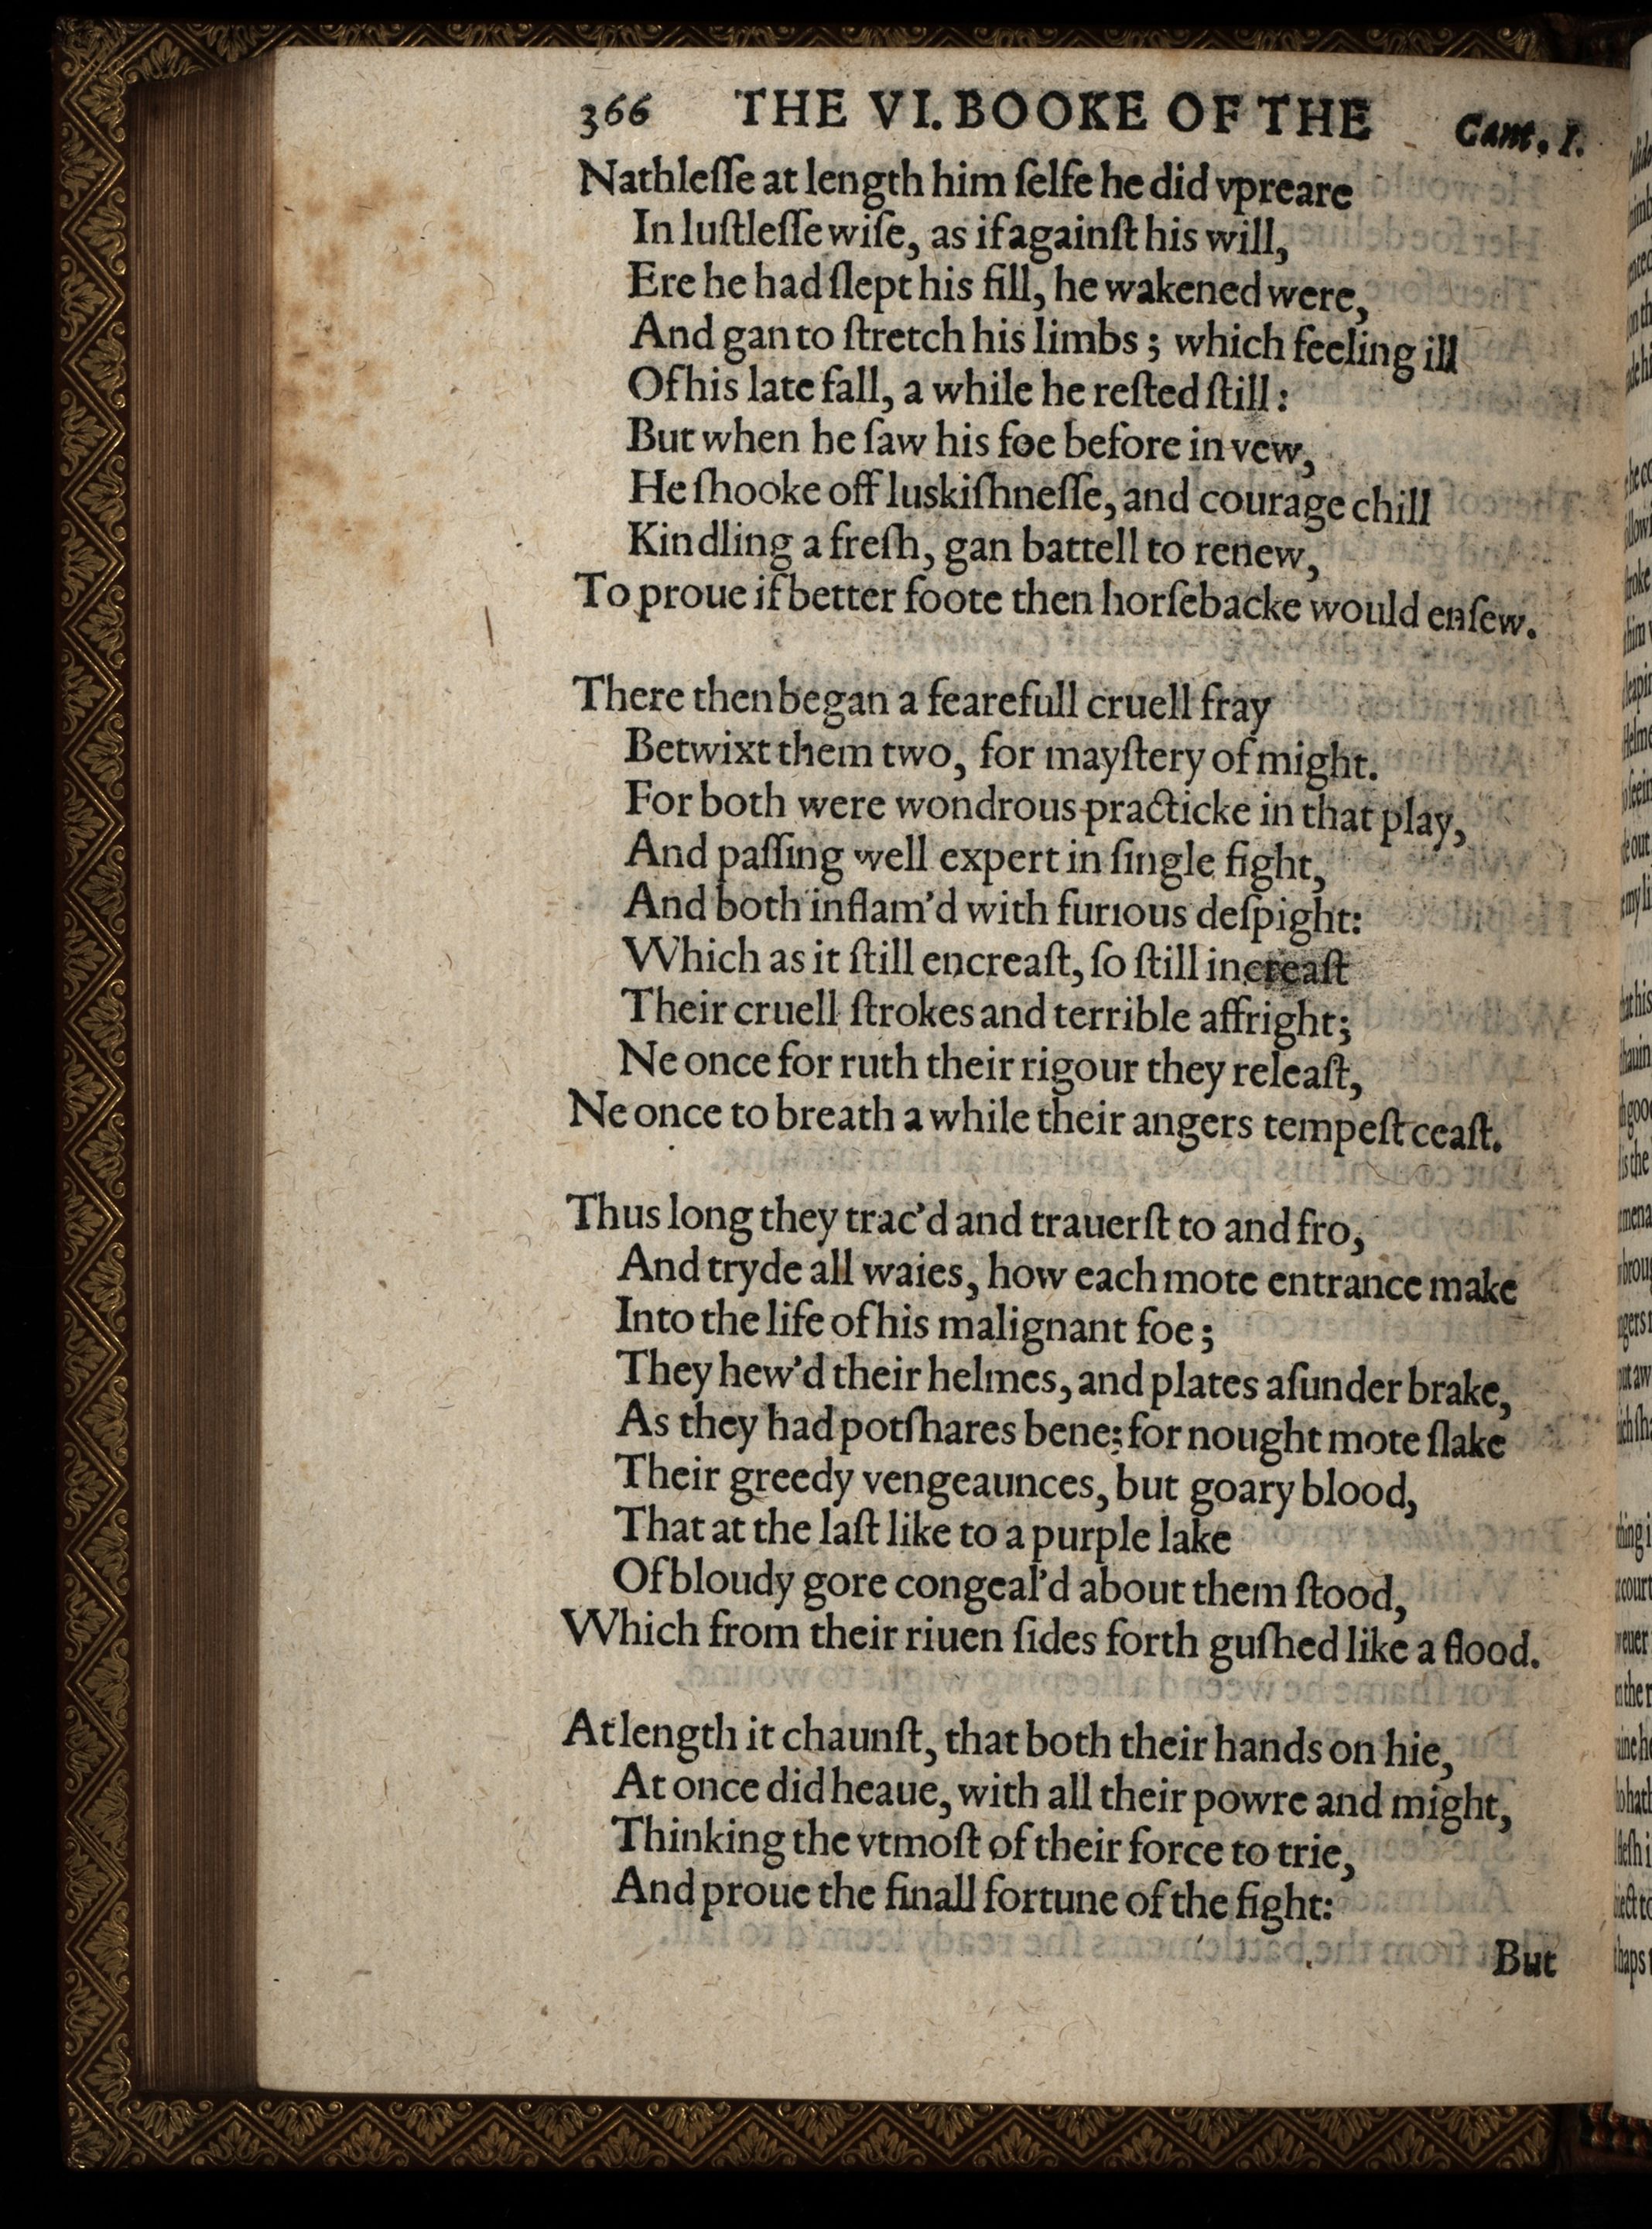 366 THE VI. BOOKE OF THE Cant. I.
Nathleſſe at length him ſelfe he did vpreare
In luſtleſſe wiſe, as if againſt his will,
Ere he had ſlept his fill, he wakened were,
And gan to ſtretch his limbs; which feeling ill
Of his late fall, a while he reſted ſtill:
But when he ſaw his foe before in vew,
He ſhooke off luskiſhneſſe, and courage chill
Kindling a freſh, gan battell to renew,
To proue if better foote then horſebacke would enſew.
There then began a fearefull cruell fray
Betwixt them two, for mayſtery of might.
For both were wondrous practicke in that play,
And paſſing well expert in ſingle fight,
And both inflam'd with furious deſpight:
Which as it ſtill encreaſt, ſo ſtill increaſt
Their cruell ſtrokes and terrible affright;
Ne once for ruth their rigour they releaſt,
Ne once to breath a while their angers tempeſt ceaſt.
Thus long they trac'd and trauerſt to and fro,
And tryde all waies, how each mote entrance make
Into the life of his malignant foe;
They hew'd their helmes, and plates aſunder brake,
As they had potſhares bene; for nought mote ſlake
Their greedy vengeaunces, but goary blood,
That at the laſt like to a purple lake
Of bloudy gore congeal'd about them ſtood,
Which from their riuen ſides forth guſhed like a flood.
At length it chaunſt, that both their hands on hie,
At once did heaue, with all their powre and might,
Thinking the vtmoſt of their force to trie,
And proue the finall fortune of the fight:
But